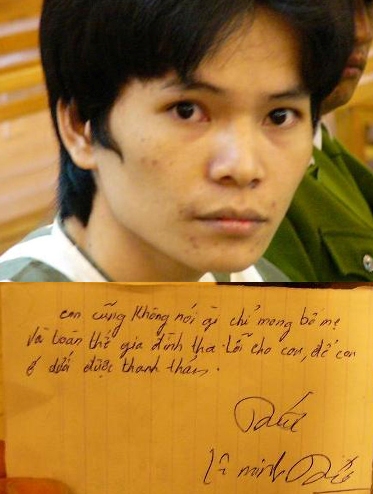 con cũng không nói gì chỉ mong bố mẹ
và toàn thể gia đình tha lỗi cho con, để con
ở dưới được thanh thản.
minh